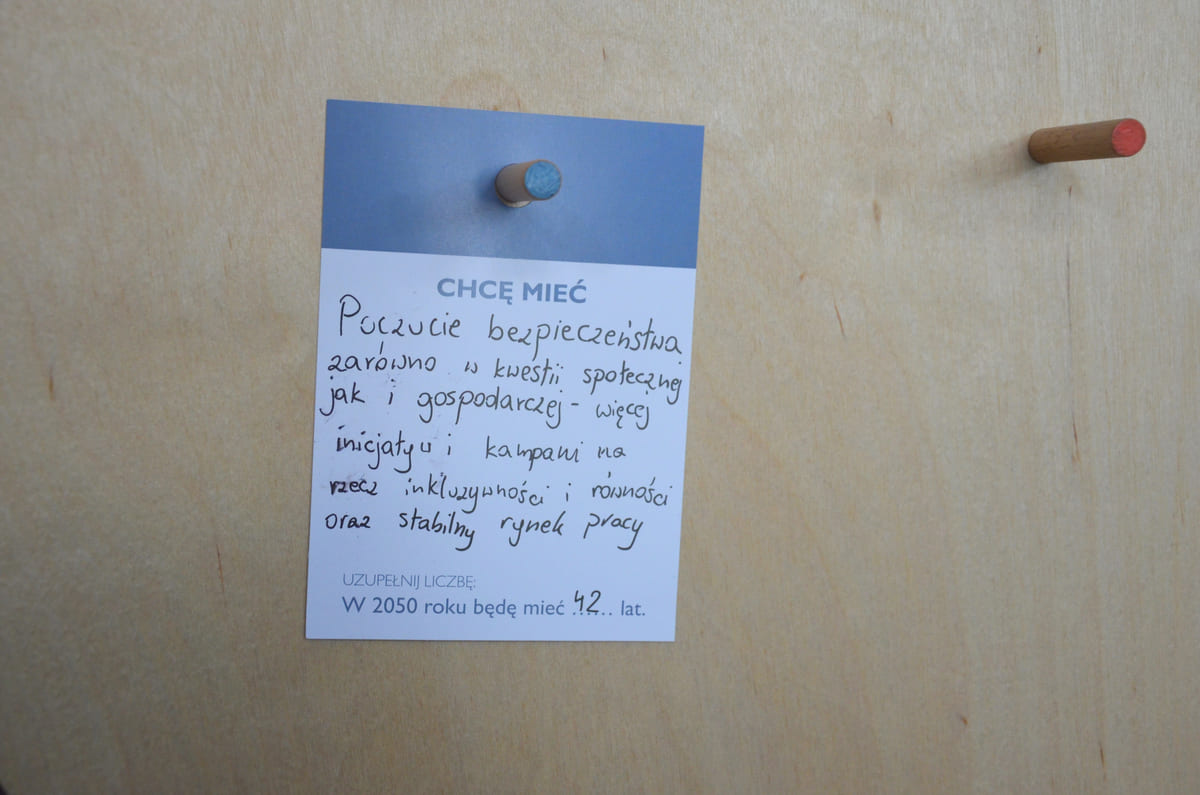 CHCĘ MIEĆ
Poczucie bezpieczeństwa
zarówno w kwestii społecznej
jak i gospodarczej - więcej
inicjatyw i kampani na
rzecz inkluzywności i równości
oraz stabilny rynek pracy
UZUPEŁNIJ LICZBĘ:
W 2050 roku będę mieć 42 lat.